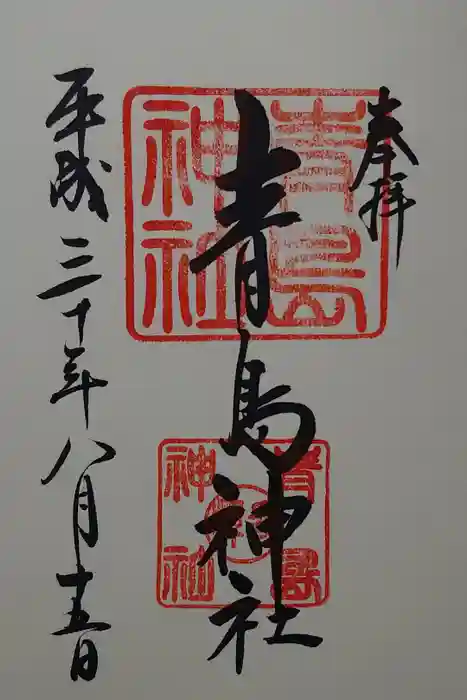 奉拝
青島神社
平成三十年八月十五日
青島
神社
神社